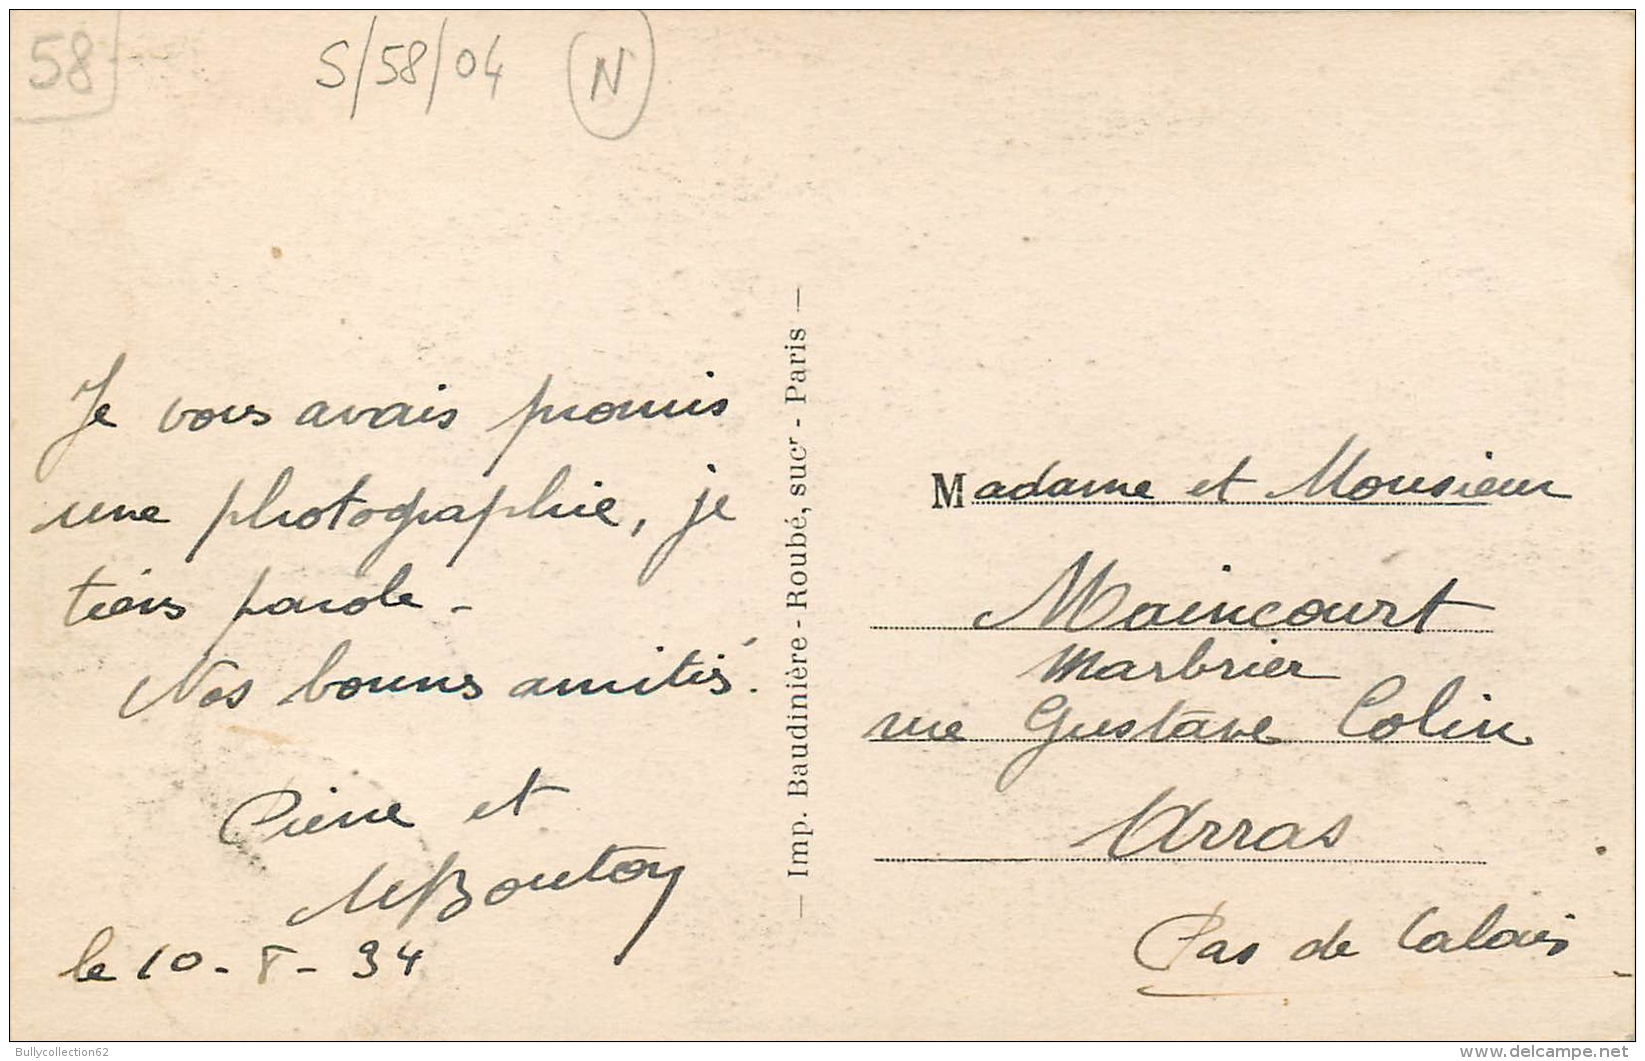 58
S/58/04 N
Je vous avais promis
une photographie, je
tiens parole -
Nos bonnes amitiés.
Pierre et
Boutoy
le 10 - 8 - 34
— Imp. Baudinière - Roubé, sucʳ - Paris —
Madame et Monsieur
Maincourt
Marbrier
rue Gustave Colin
Arras
Pas de Calais
Bullycollection62
www.delcampe.net